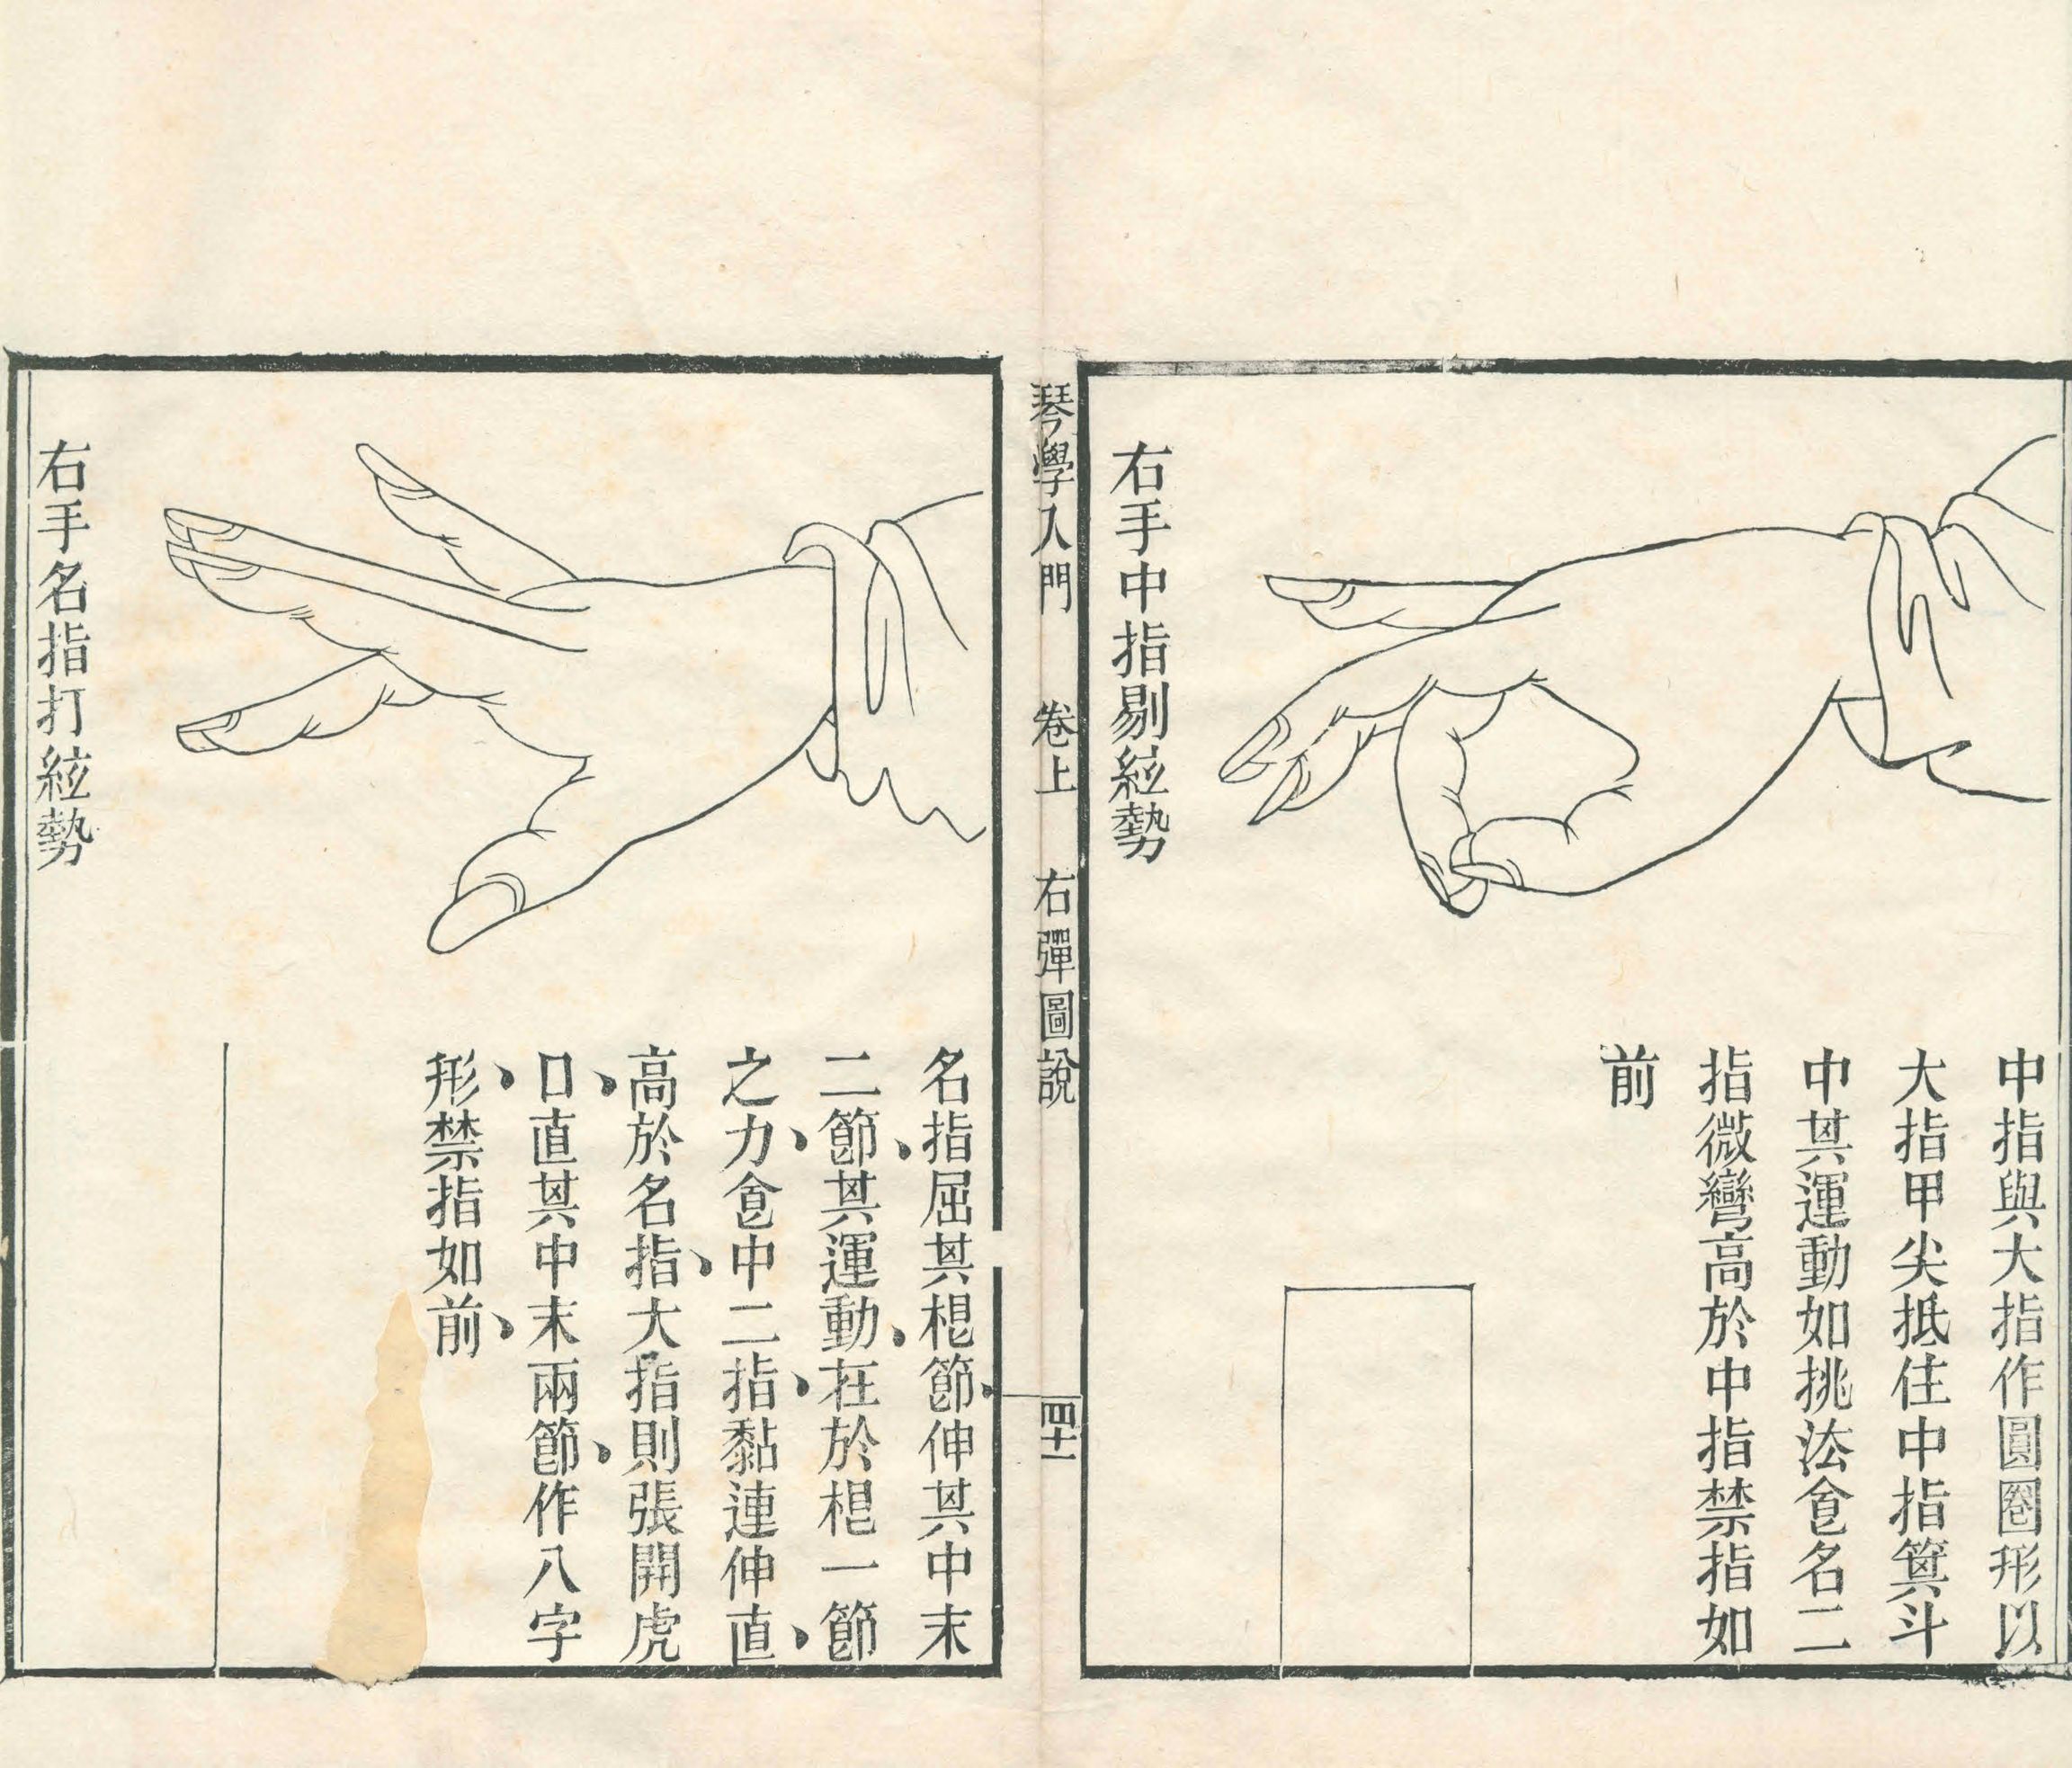 右手中指剔絃勢
中指與大指作圓圈形以
大指甲尖抵住中指箕斗
中其運動如挑法食名二
指微彎高於中指禁指如
前
琴學入門 卷上 右彈圖說 四十一
右手名指打絃勢
名指屈其根節、伸其中末
二節、其運動、在於根一節
之力、食中二指、黏連伸直、
高於名指、大指則張開虎
口、直其中末兩節、作八字
形、禁指如前、